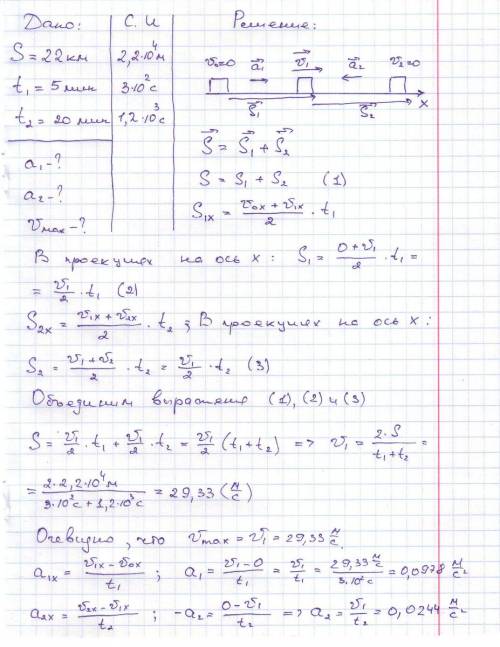 Дано: С. И Решение:
S = 22 км 2,2·10⁴ м
t₁ = 5 мин 3·10² с
t₂ = 20 мин 1,2·10³ с
a₁ - ?
a₂ - ?
υmax - ?
υ₀=0 a⃗₁ υ⃗₁ a⃗₂ υ₂=0
S⃗₁ S⃗₂ x
S⃗ = S⃗₁ + S⃗₂
S = S₁ + S₂ (1)
S₁ₓ = (υ₀ₓ + υ₁ₓ)/2 · t₁
В проекциях на ось x: S₁ = (0 + υ₁)/2 · t₁ =
= υ₁/2 · t₁ (2)
S₂ₓ = (υ₁ₓ + υ₂ₓ)/2 · t₂ ; В проекциях на ось x:
S₂ = (υ₁ + υ₂)/2 · t₂ = υ₁/2 · t₂ (3)
Объединим выражения (1), (2) и (3)
S = υ₁/2 · t₁ + υ₁/2 · t₂ = υ₁/2 (t₁ + t₂) => υ₁ = 2·S/(t₁ + t₂) =
= 2·2,2·10⁴ м/(3·10² с + 1,2·10³ с) = 29,33 (м/с)
Очевидно, что υmax = υ₁ = 29,33 м/с.
a₁ₓ = (υ₁ₓ - υ₀ₓ)/t₁ ; a₁ = (υ₁ - 0)/t₁ = υ₁/t₁ = 29,33 м/с/3·10² с = 0,0978 м/с²
a₂ₓ = (υ₂ₓ - υ₁ₓ)/t₂ ; -a₂ = (0 - υ₁)/t₂ => a₂ = υ₁/t₂ = 0,0244 м/с²